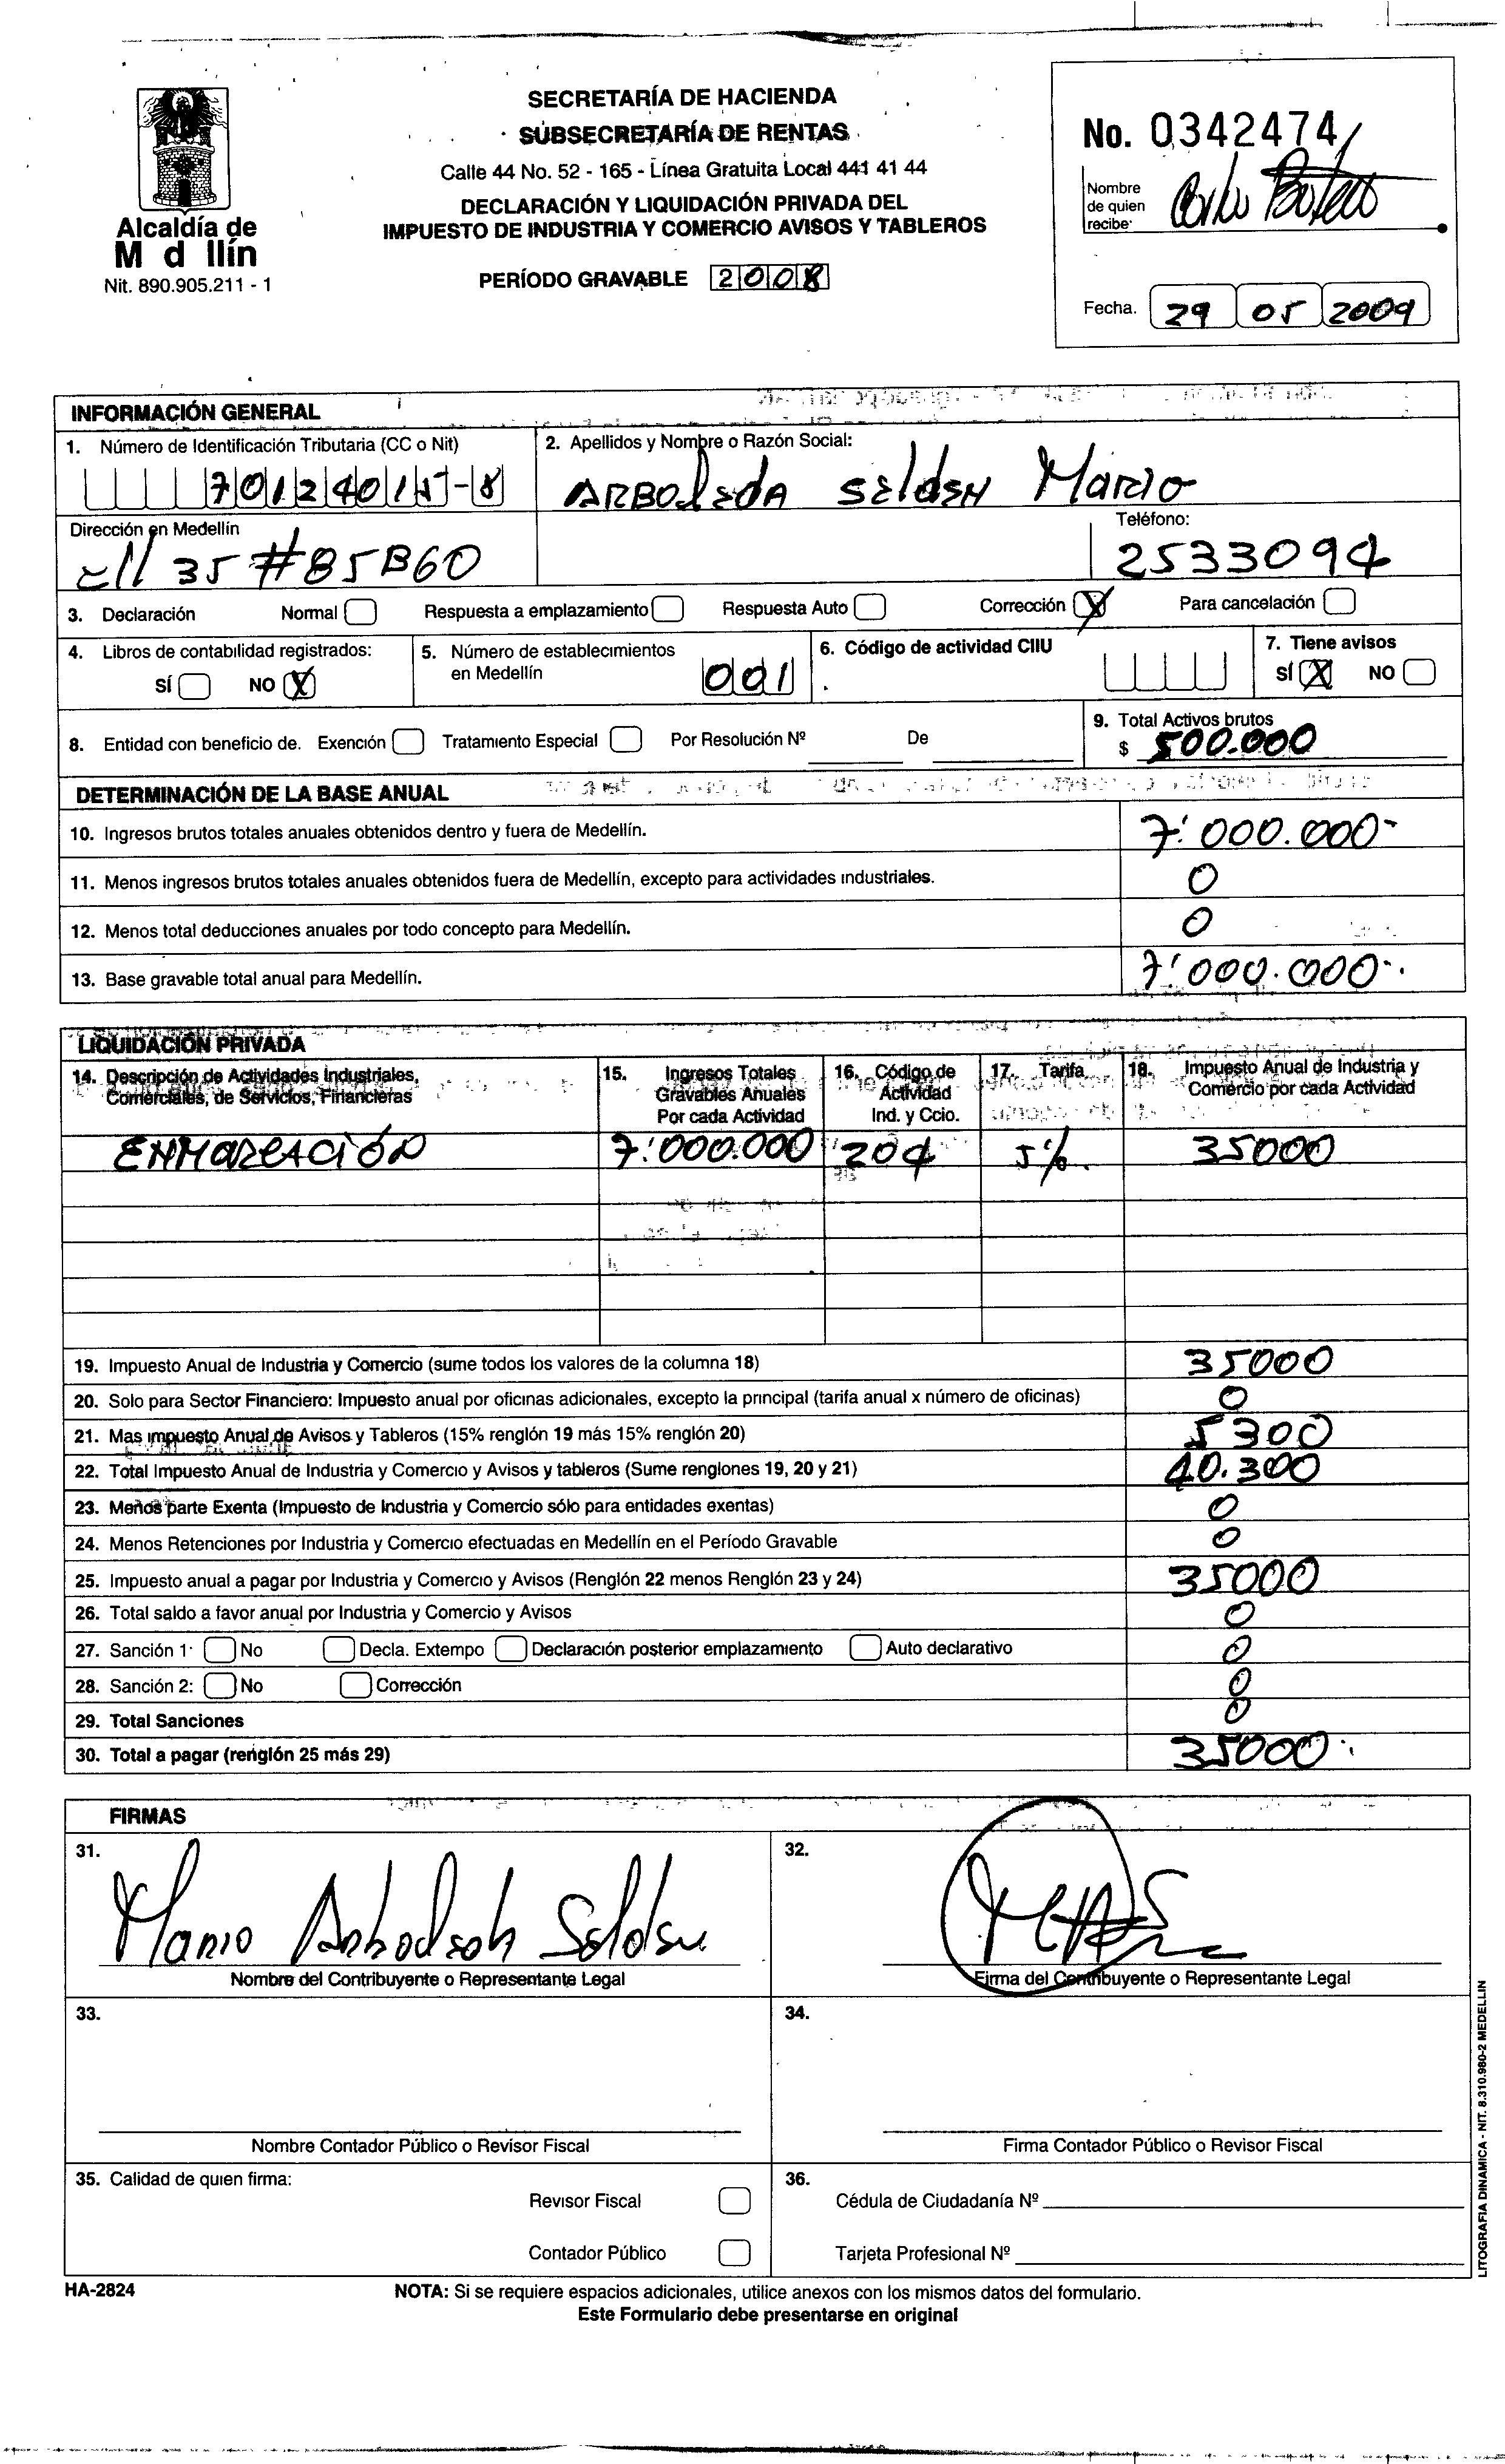 SECRETARÍA DE HACIENDA
SUBSECRETARÍA DE RENTAS
Calle 44 No. 52 - 165 - Línea Gratuita Local 441 41 44
DECLARACIÓN Y LIQUIDACIÓN PRIVADA DEL
IMPUESTO DE INDUSTRIA Y COMERCIO AVISOS Y TABLEROS
PERÍODO GRAVABLE 2008
Alcaldía de
M d llín
Nit. 890.905.211 - 1
No. 0342474
Nombre
de quien
recibe:
Fecha. 29 05 2009
INFORMACIÓN GENERAL
1. Número de Identificación Tributaria (CC o Nit)
70124015-8
2. Apellidos y Nombre o Razón Social:
ARBOLEDA Selden Mario
Dirección en Medellín
cll 35 #85B60
Teléfono:
2533094
3. Declaración Normal Respuesta a emplazamiento Respuesta Auto Corrección X Para cancelación
4. Libros de contabilidad registrados:
SÍ NO X
5. Número de establecimientos
en Medellín 001
6. Código de actividad CIIU
7. Tiene avisos
SÍ X NO
8. Entidad con beneficio de. Exención Tratamiento Especial Por Resolución Nº De
9. Total Activos brutos
$ 500.000
DETERMINACIÓN DE LA BASE ANUAL
10. Ingresos brutos totales anuales obtenidos dentro y fuera de Medellín. 7'000.000-
11. Menos ingresos brutos totales anuales obtenidos fuera de Medellín, excepto para actividades industriales. 0
12. Menos total deducciones anuales por todo concepto para Medellín. 0
13. Base gravable total anual para Medellín. 7'000.000-
LIQUIDACIÓN PRIVADA
14. Descripción de Actividades Industriales,
Comerciales, de Servicios, Financieras
15. Ingresos Totales
Gravables Anuales
Por cada Actividad
16. Código de
Actividad
Ind. y Ccio.
17. Tarifa
18. Impuesto Anual de Industria y
Comercio por cada Actividad
ENMARCACIÓN 7'000.000 204 5% 35000
19. Impuesto Anual de Industria y Comercio (sume todos los valores de la columna 18) 35000
20. Solo para Sector Financiero: Impuesto anual por oficinas adicionales, excepto la principal (tarifa anual x número de oficinas) 0
21. Mas impuesto Anual de Avisos y Tableros (15% renglón 19 más 15% renglón 20) 5300
22. Total Impuesto Anual de Industria y Comercio y Avisos y tableros (Sume renglones 19, 20 y 21) 40.300
23. Menos parte Exenta (Impuesto de Industria y Comercio sólo para entidades exentas) 0
24. Menos Retenciones por Industria y Comercio efectuadas en Medellín en el Período Gravable 0
25. Impuesto anual a pagar por Industria y Comercio y Avisos (Renglón 22 menos Renglón 23 y 24) 35000
26. Total saldo a favor anual por Industria y Comercio y Avisos 0
27. Sanción 1: No Decla. Extempo Declaración posterior emplazamiento Auto declarativo 0
28. Sanción 2: No Corrección 0
29. Total Sanciones 0
30. Total a pagar (renglón 25 más 29) 35000
FIRMAS
31. Mario
Nombre del Contribuyente o Representante Legal
32.
Firma del Contribuyente o Representante Legal
33.
Nombre Contador Público o Revisor Fiscal
34.
Firma Contador Público o Revisor Fiscal
35. Calidad de quien firma:
Revisor Fiscal
Contador Público
36.
Cédula de Ciudadanía Nº
Tarjeta Profesional Nº
LITOGRAFIA DINAMICA - NIT. 8.310.980-2 MEDELLIN
HA-2824
NOTA: Si se requiere espacios adicionales, utilice anexos con los mismos datos del formulario.
Este Formulario debe presentarse en original